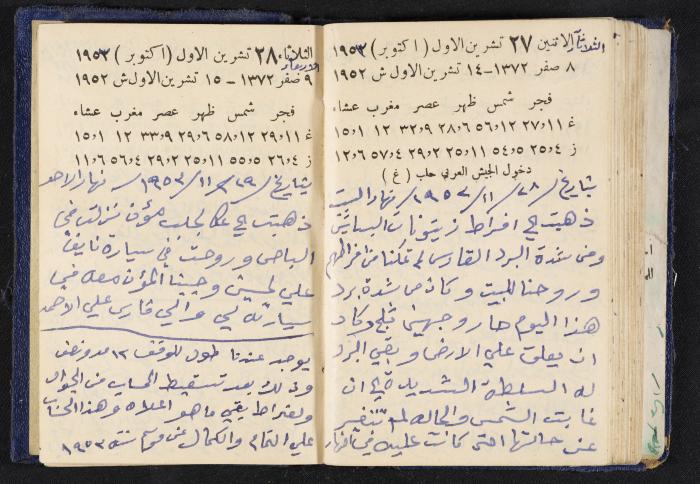 الاثنين ٢٧ تشرين الاول ( اكتوبر ) ١٩٥٣
الثلاثاء
٨ صفر ١٣٧٢ – ١٤ تشرين الاول ش ١٩٥٢
فجر شمس ظهر عصر مغرب عشاء
غ ١١و٢٧ ١٢و٥٦ ٦و٢٨ ٩و٣٢ ١٢ ١و١٥
ز ٤و٢٥ ٥و٥٤ ١١و٢٥ ٢و٢٩ ٤و٥٧ ٦و١٢
دخول الجيش العربي حلب ( غ )
بتاريخ / ٢٨ / ١١ / ١٩٥٢ / نهار السبت
ذهبت افراط زيتونات البساتين
ومن شدة البرد القارس لم تمكنا من افراطهم
وروحنا للبيت وكان من شدة برد
هذا اليوم صار وجهين ثلج وكاد
ان يعلق علي الارض وبقي البرد
له السلطة الشديدة الي ان
غابت الشمس والحاله لم تتغير
عن حالتها التي كانت عليه في النهار
الثلاثاء ٢٨ تشرين الاول ( اكتوبر ) ١٩٥٣
الاربعاء
٩ صفر ١٣٧٢ – ١٥ تشرين الاول ش ١٩٥٢
فجر شمس ظهر عصر مغرب عشاء
غ ١١و٢٩ ١٢و٥٨ ٦و٢٩ ٩و٣٣ ١٢ ١و١٥
ز ٤و٢٦ ٥و٥٥ ١١و٢٥ ٢و٢٩ ٤و٥٦ ٦و١١
بتاريخ / ٢٩ / ١١ / ١٩٥٣ / نهار الاحد
ذهبت الي عكا لجلب مؤن نزلت في
الباص وروحت في سيارة نايف
علي وجبنا المؤن معه في
سيارته لي والي فارس علي الاحمد
يوجد عندنا طول للوقف ١٢ مد ونصف
وذلك بعد تسقيط الحساب من الجوال
يبقي ما هو اعلاه وهذا الحساب
علي التمام والكمال عن موسم سنة ١٩٥٣